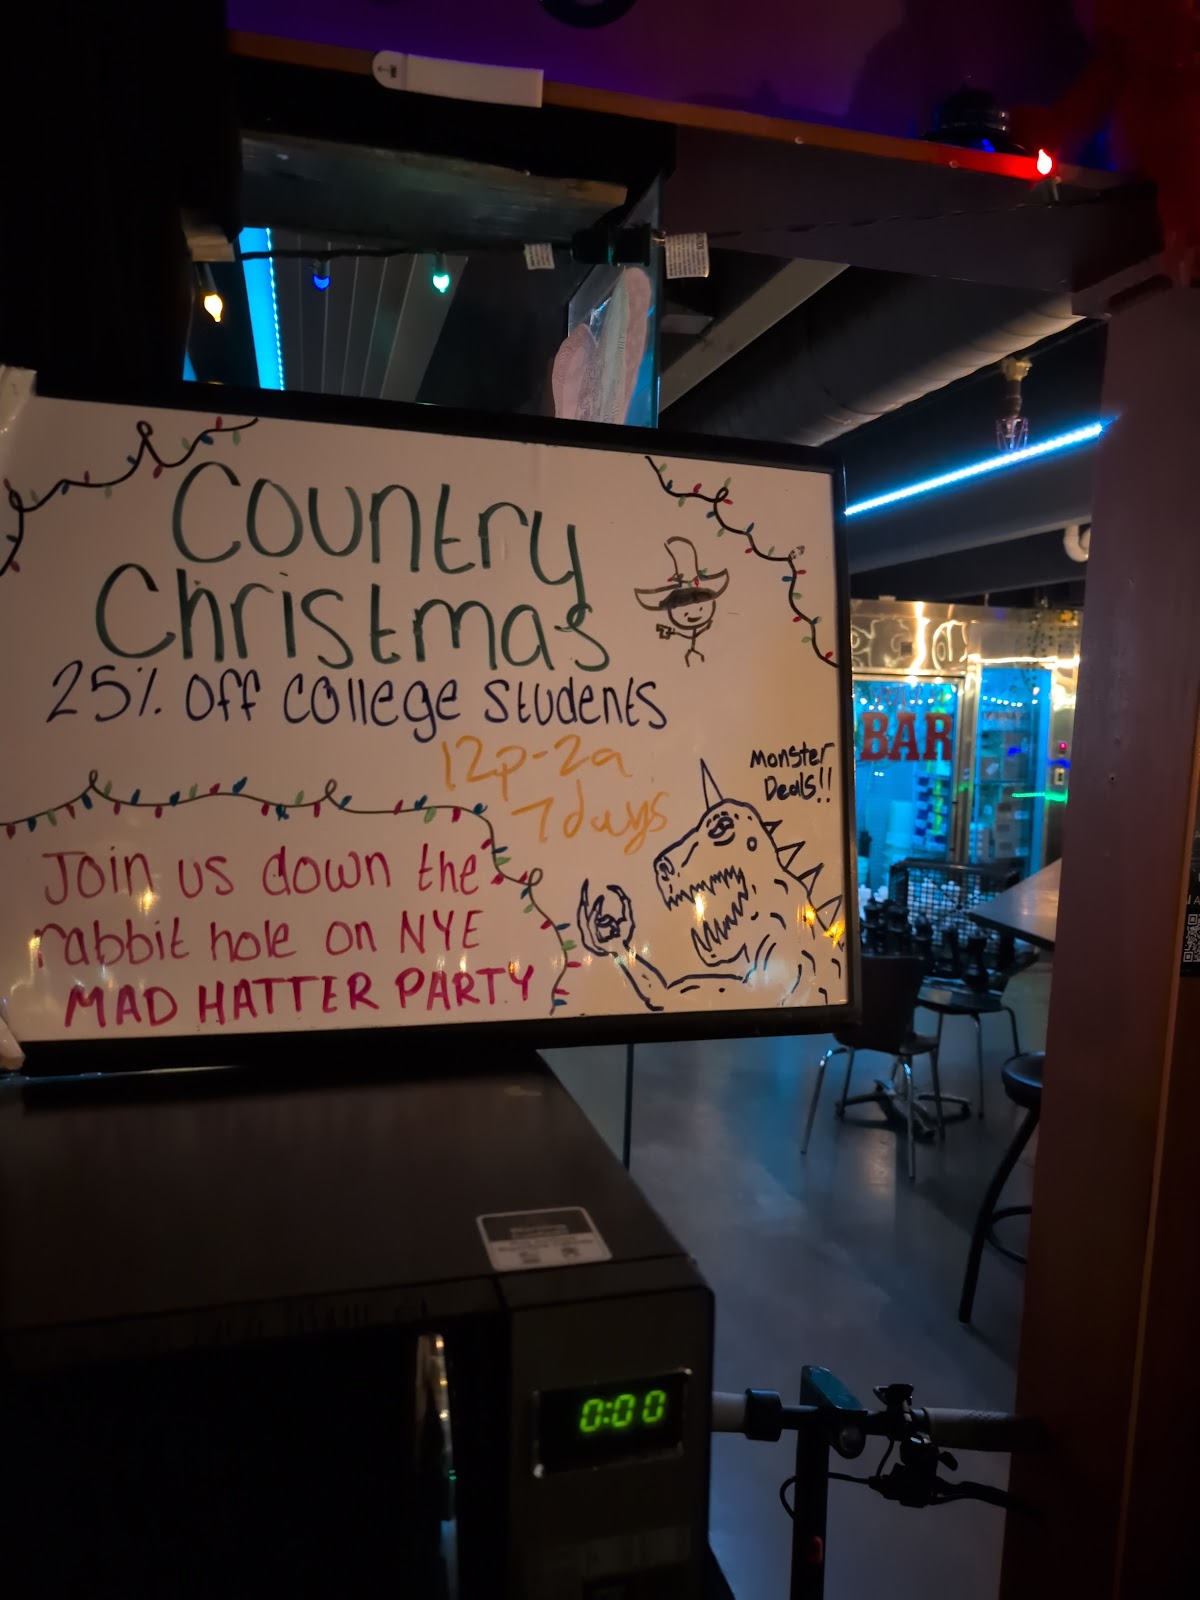 Country
Christmas
25% off college students
12p-2a
7 days
Monster
Deals!!
Join us down the
rabbit hole on NYE
MAD HATTER PARTY
BAR
0:00